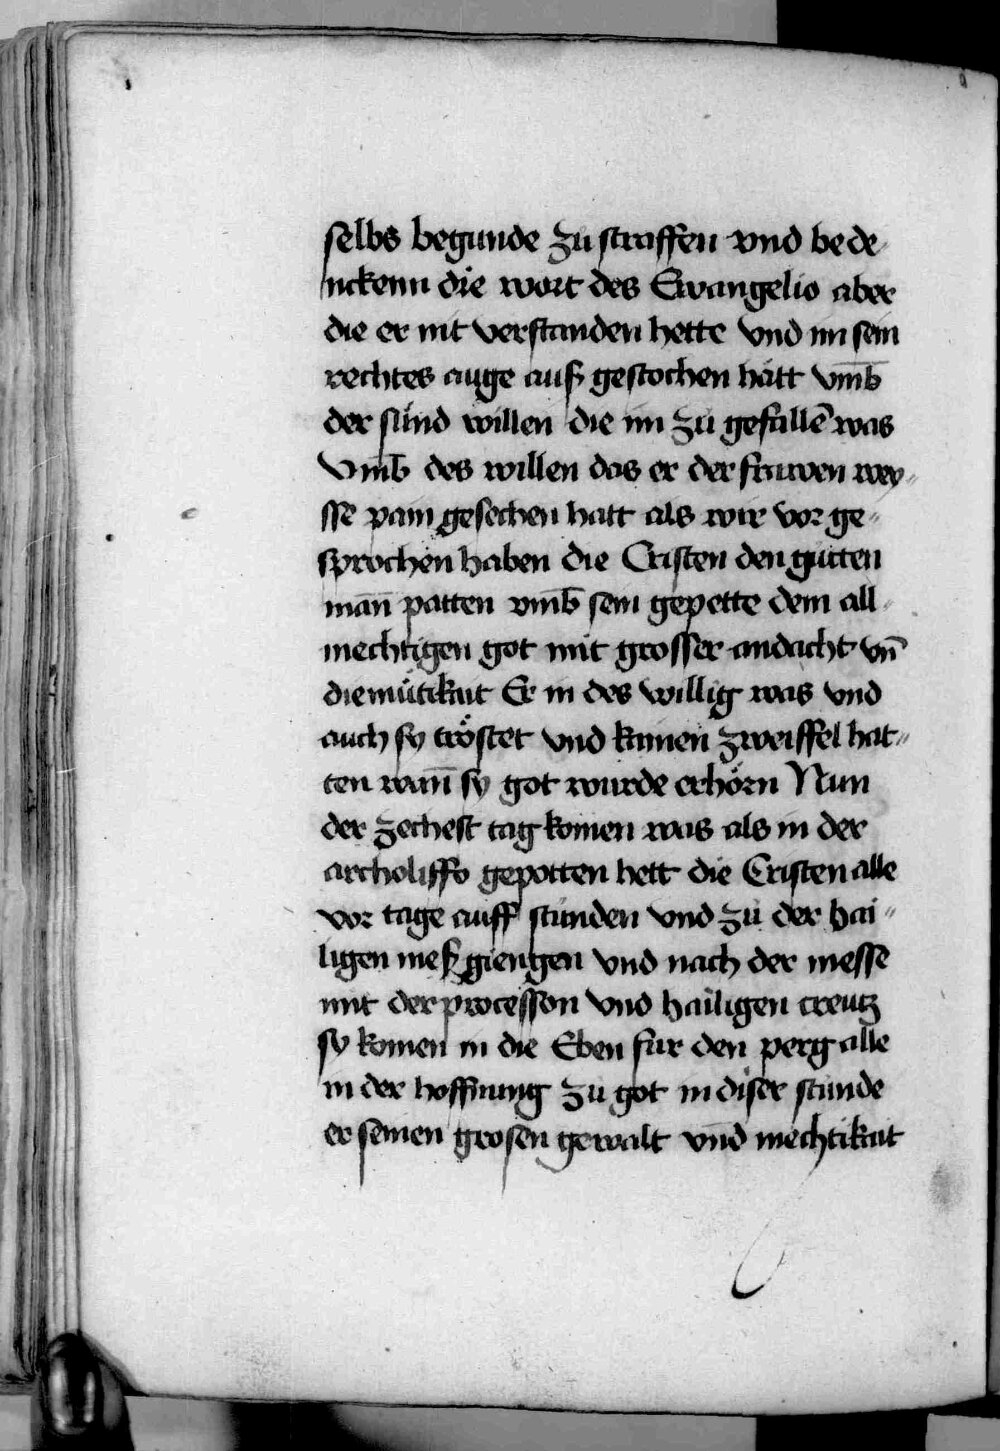 selbs begunde zu straffen vnd bede-
nckenn die wort des Ewangelio aber
die er nit verstanden hette vnd im sein
rechtes auge auß gestochen hätt vm̄b
der sünd willen die im zů gefallē was
Vm̄b des willen das er der frawen wey-
sse pain gesechen hatt als wir vor ge-
sprochen haben die Cristen den gůtten
man̄ patten vm̄b sein gepette dem all-
mechtigen got mit grosser andacht vn̄
diemütikait Er in des willig was vnd
auch sy tröstet vnd kainen zweiffel hat-
ten wan̄ sy got wurde erhörn Nun
der zechest tag komen was als in der
archoliffo gepotten hett die Cristen alle
vor tage auff stůnden vnd zů der hai-
ligen meß giengen vnd nach der messe
mit der processon vnd hailigen creutz
sy komen in die Eben für den perg alle
in der hoffnung zu got in diser stunde
er seinen grosen gewalt vn̄d mechtikait